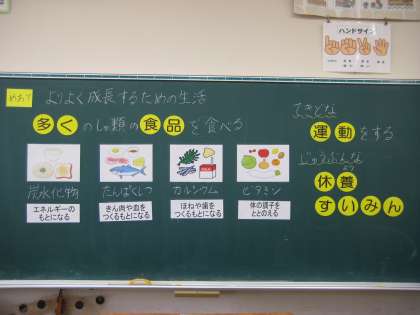 ハンドサイン
めあて
よりよく成長するための生活
多くのしゅ類の食品を食べる
炭水化物
エネルギーの
もとになる
たんぱくしつ
きん肉や血を
つくるもとになる
カルシウム
ほねや歯を
つくるもとになる
ビタミン
体の調子を
ととのえる
てきどな
運動をする
じゅうぶんな
休養
すいみん